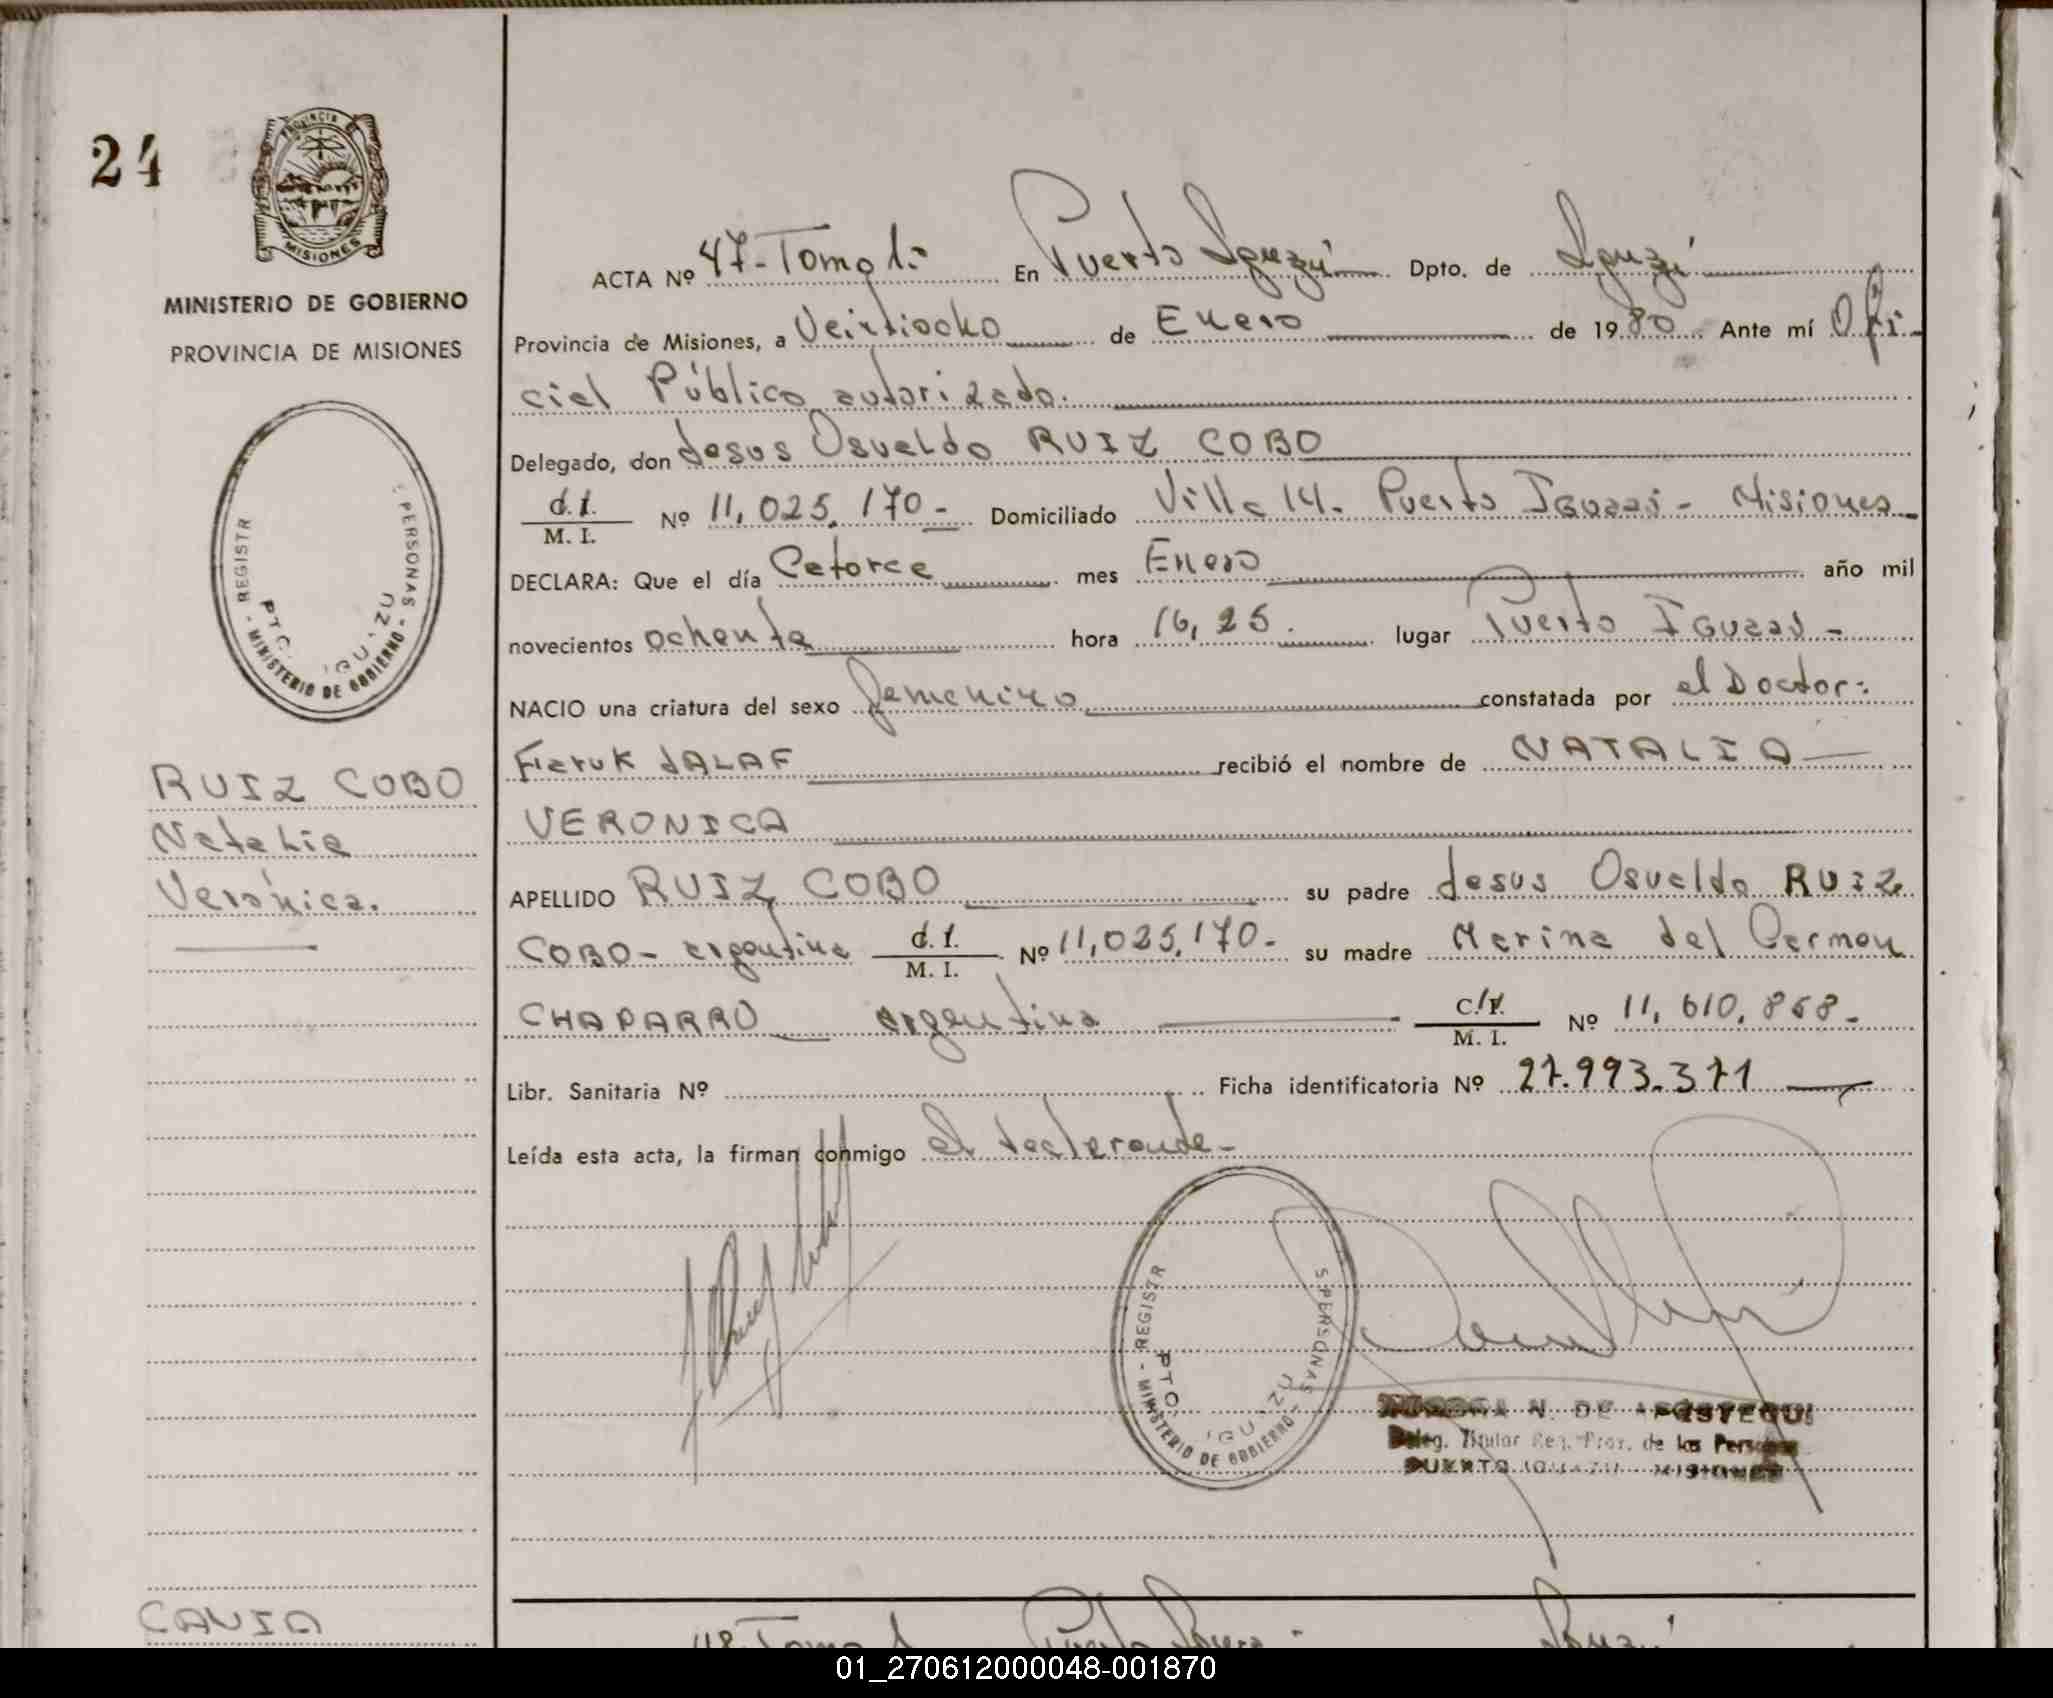 24
PROVINCIA DE
MISIONES
MINISTERIO DE GOBIERNO
PROVINCIA DE MISIONES
REGISTR PERSONAS
PTO. IGU ZU
- MINISTERIO DE GOBIERNO -
RUIZ COBO
Natalia
Verónica.
CAVIA
ACTA Nº 47- Tomo 1: En Puerto Iguazú Dpto. de Iguazú
Provincia de Misiones, a Veintiocho de Enero de 1980 Ante mí Ofi-
cial Público autorizado.
Delegado, don Jesus Osvaldo RUIZ COBO
d.I.
M. I. Nº 11,025,170- Domiciliado Villa 14. Puerto Iguazú - Misiones
DECLARA: Que el día Catorce mes Enero año mil
novecientos ochenta hora 16,25. lugar Puerto Iguazú -
NACIO una criatura del sexo femenino constatada por el Doctor:
Faruk JALAF recibió el nombre de NATALIA
VERONICA
APELLIDO RUIZ COBO su padre Jesus Osvaldo RUIZ
COBO- argentina d.I.
M. I. Nº 11,025,170- su madre Marina del Carmen
CHAPARRO argentina C.I.
M. I. Nº 11,610,868-
Libr. Sanitaria Nº Ficha identificatoria Nº 27.993.371
Leída esta acta, la firman conmigo el declarante-
REGISTR S PERSONAS
PTO. IGU ZU
- MINISTERIO DE GOBIERNO -
N. DE
Deleg. Titular Reg. Prov. de las Personas
PUERTO IGUAZU - MISIONES
48 Tomo 1 Puerto Iguazú Iguazú
01_270612000048-001870